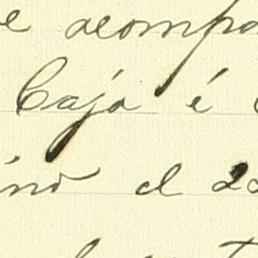 e acompa
Caja é
ino el 22